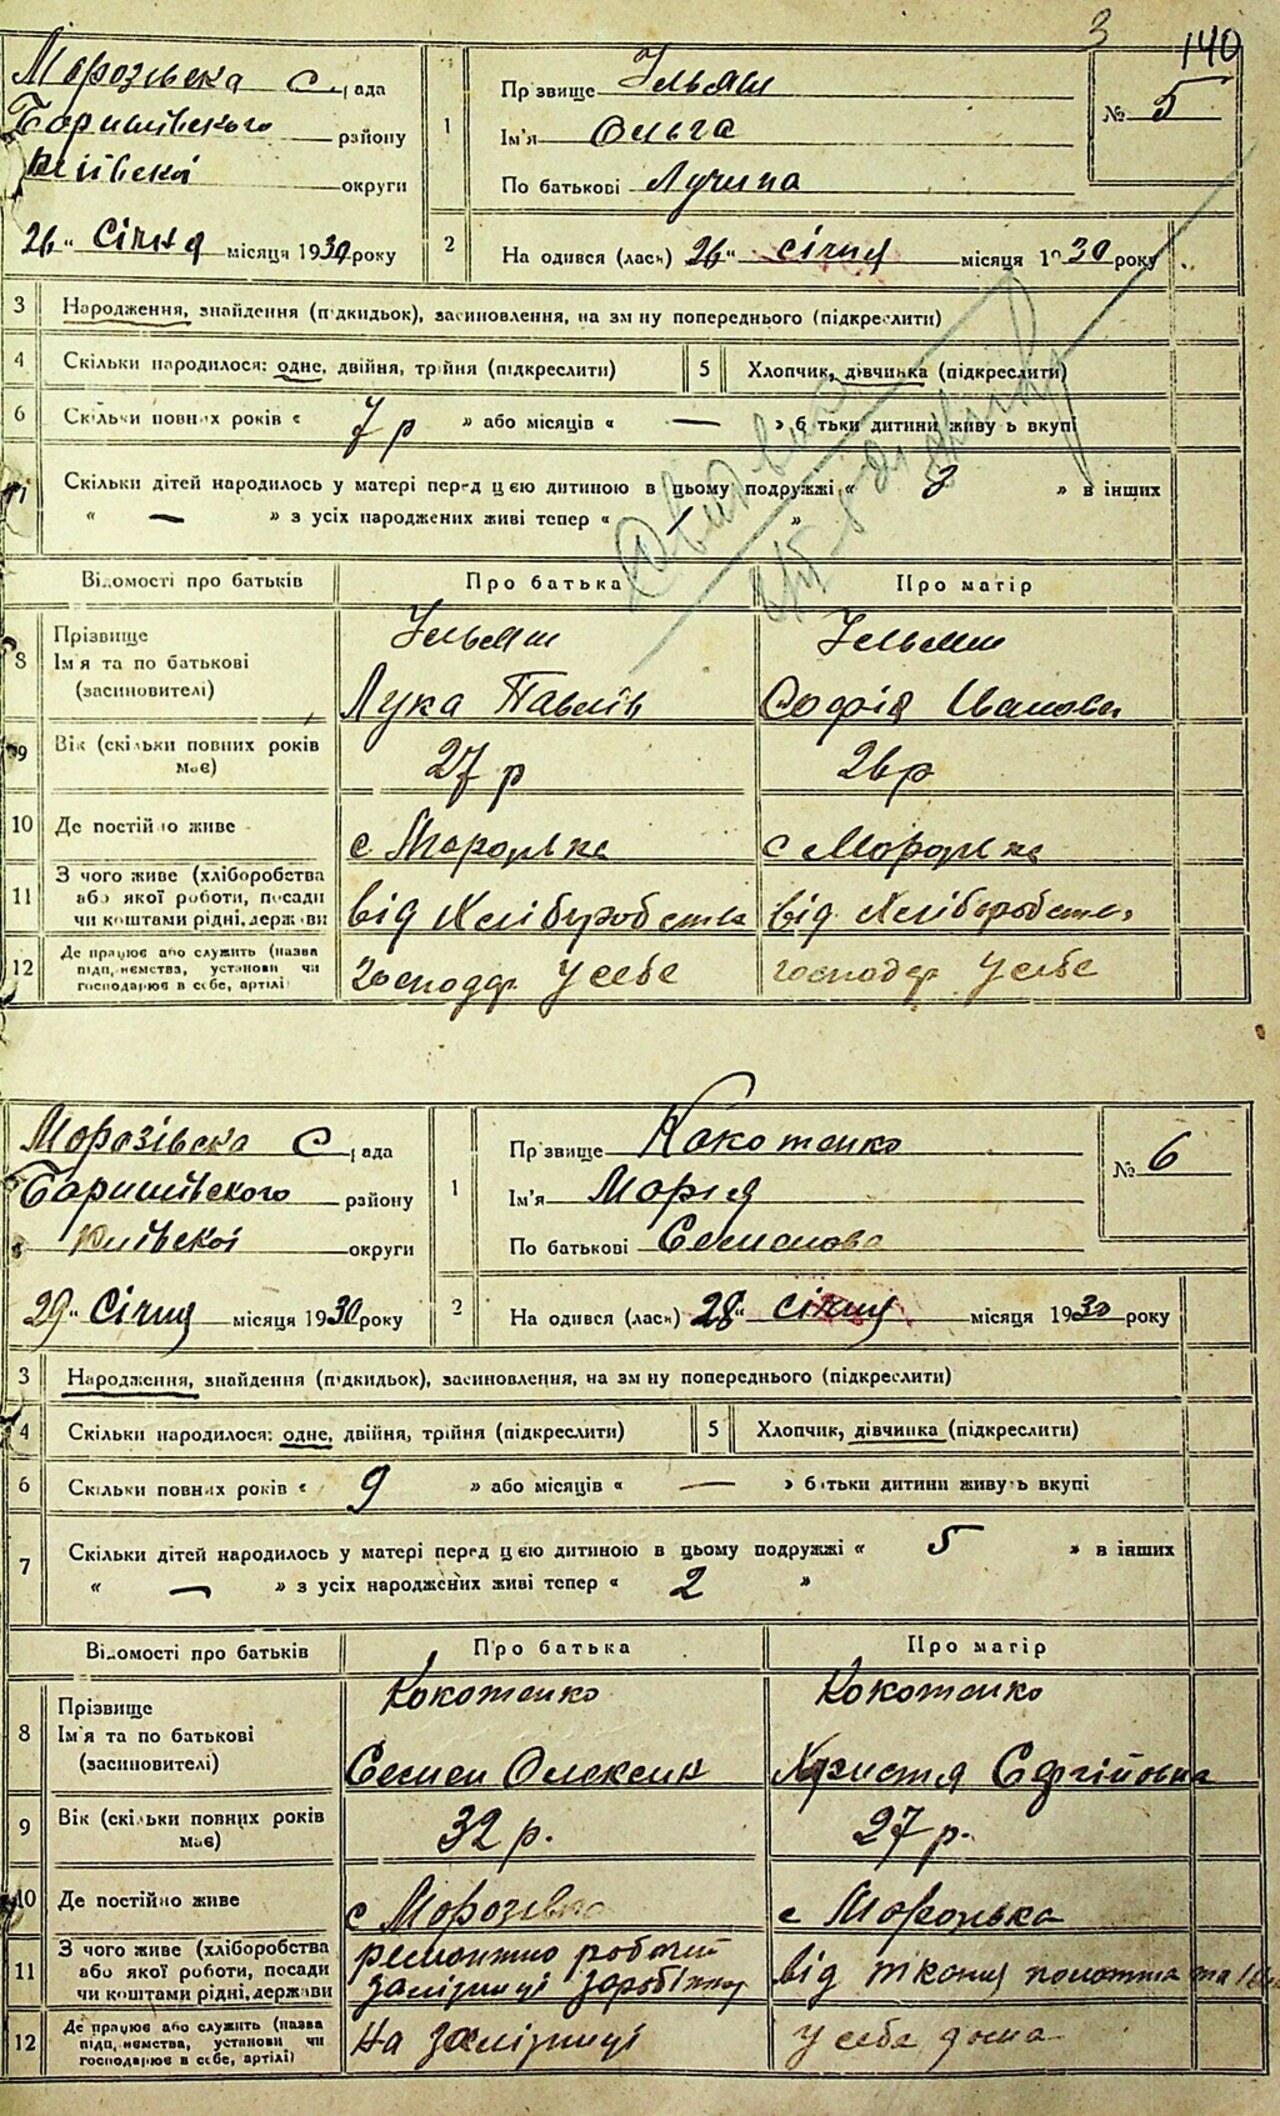 3 140
Морозівська С. рада
Баришівського району
Київської округи
26 " Січня місяця 1930 року
1 Прізвище Ільяш
Ім'я Ольга
По батькові Лучина
№ 5
2 Народився (лася) 26 " січня місяця 1930 року
3 Народження, знайдення (підкидьок), засиновлення, на зміну попереднього (підкреслити)
4 Скільки народилося: одне, двійня, трійня (підкреслити) 5 Хлопчик, дівчинка (підкреслити)
6 Скільки повних років « 7 р » або місяців « — » батьки дитини живуть вкупі
7 Скільки дітей народилось у матері перед цією дитиною в цьому подружжі « 3 » в інших
« — » з усіх народжених живі тепер « 1 »
Відомості про батьків Про батька Про матір
8 Прізвище Ільяш Ільяш
Ім'я та по батькові
(засиновителі) Лука Павлів Софія Іванова
9 Вік (скільки повних років має) 27 р 26 р
10 Де постійно живе с Морозівка с Морозівка
11 З чого живе (хліборобства
або якої роботи, посади
чи коштами рідні, держави від Хліборобства від Хліборобства
12 Де працює або служить (назва
підприємства, установи чи
господарює в себе, артілі) господар у себе господар у себе
Морозівська С рада
Баришівського району
Київської округи
29 " Січня місяця 1930 року
1 Прізвище Кокотенко
Ім'я Марія
По батькові Семенова
№ 6
2 Народився (лася) 28 " січня місяця 1930 року
3 Народження, знайдення (підкидьок), засиновлення, на зміну попереднього (підкреслити)
4 Скільки народилося: одне, двійня, трійня (підкреслити) 5 Хлопчик, дівчинка (підкреслити)
6 Скільки повних років « 9 » або місяців « — » батьки дитини живуть вкупі
7 Скільки дітей народилось у матері перед цією дитиною в цьому подружжі « 5 » в інших
« — » з усіх народжених живі тепер « 2 »
Відомості про батьків Про батька Про матір
8 Прізвище Кокотенко Кокотенко
Ім'я та по батькові
(засиновителі) Семен Олексик Христя Сергійовна
9 Вік (скільки повних років має) 32 р. 27 р.
10 Де постійно живе с Морозівка с Морозівка
11 З чого живе (хліборобства
або якої роботи, посади
чи коштами рідні, держави ремонтно робочий
залізниці від ткання полотна та
12 Де працює або служить (назва
підприємства, установи чи
господарює в себе, артілі) На залізниці у себе дома